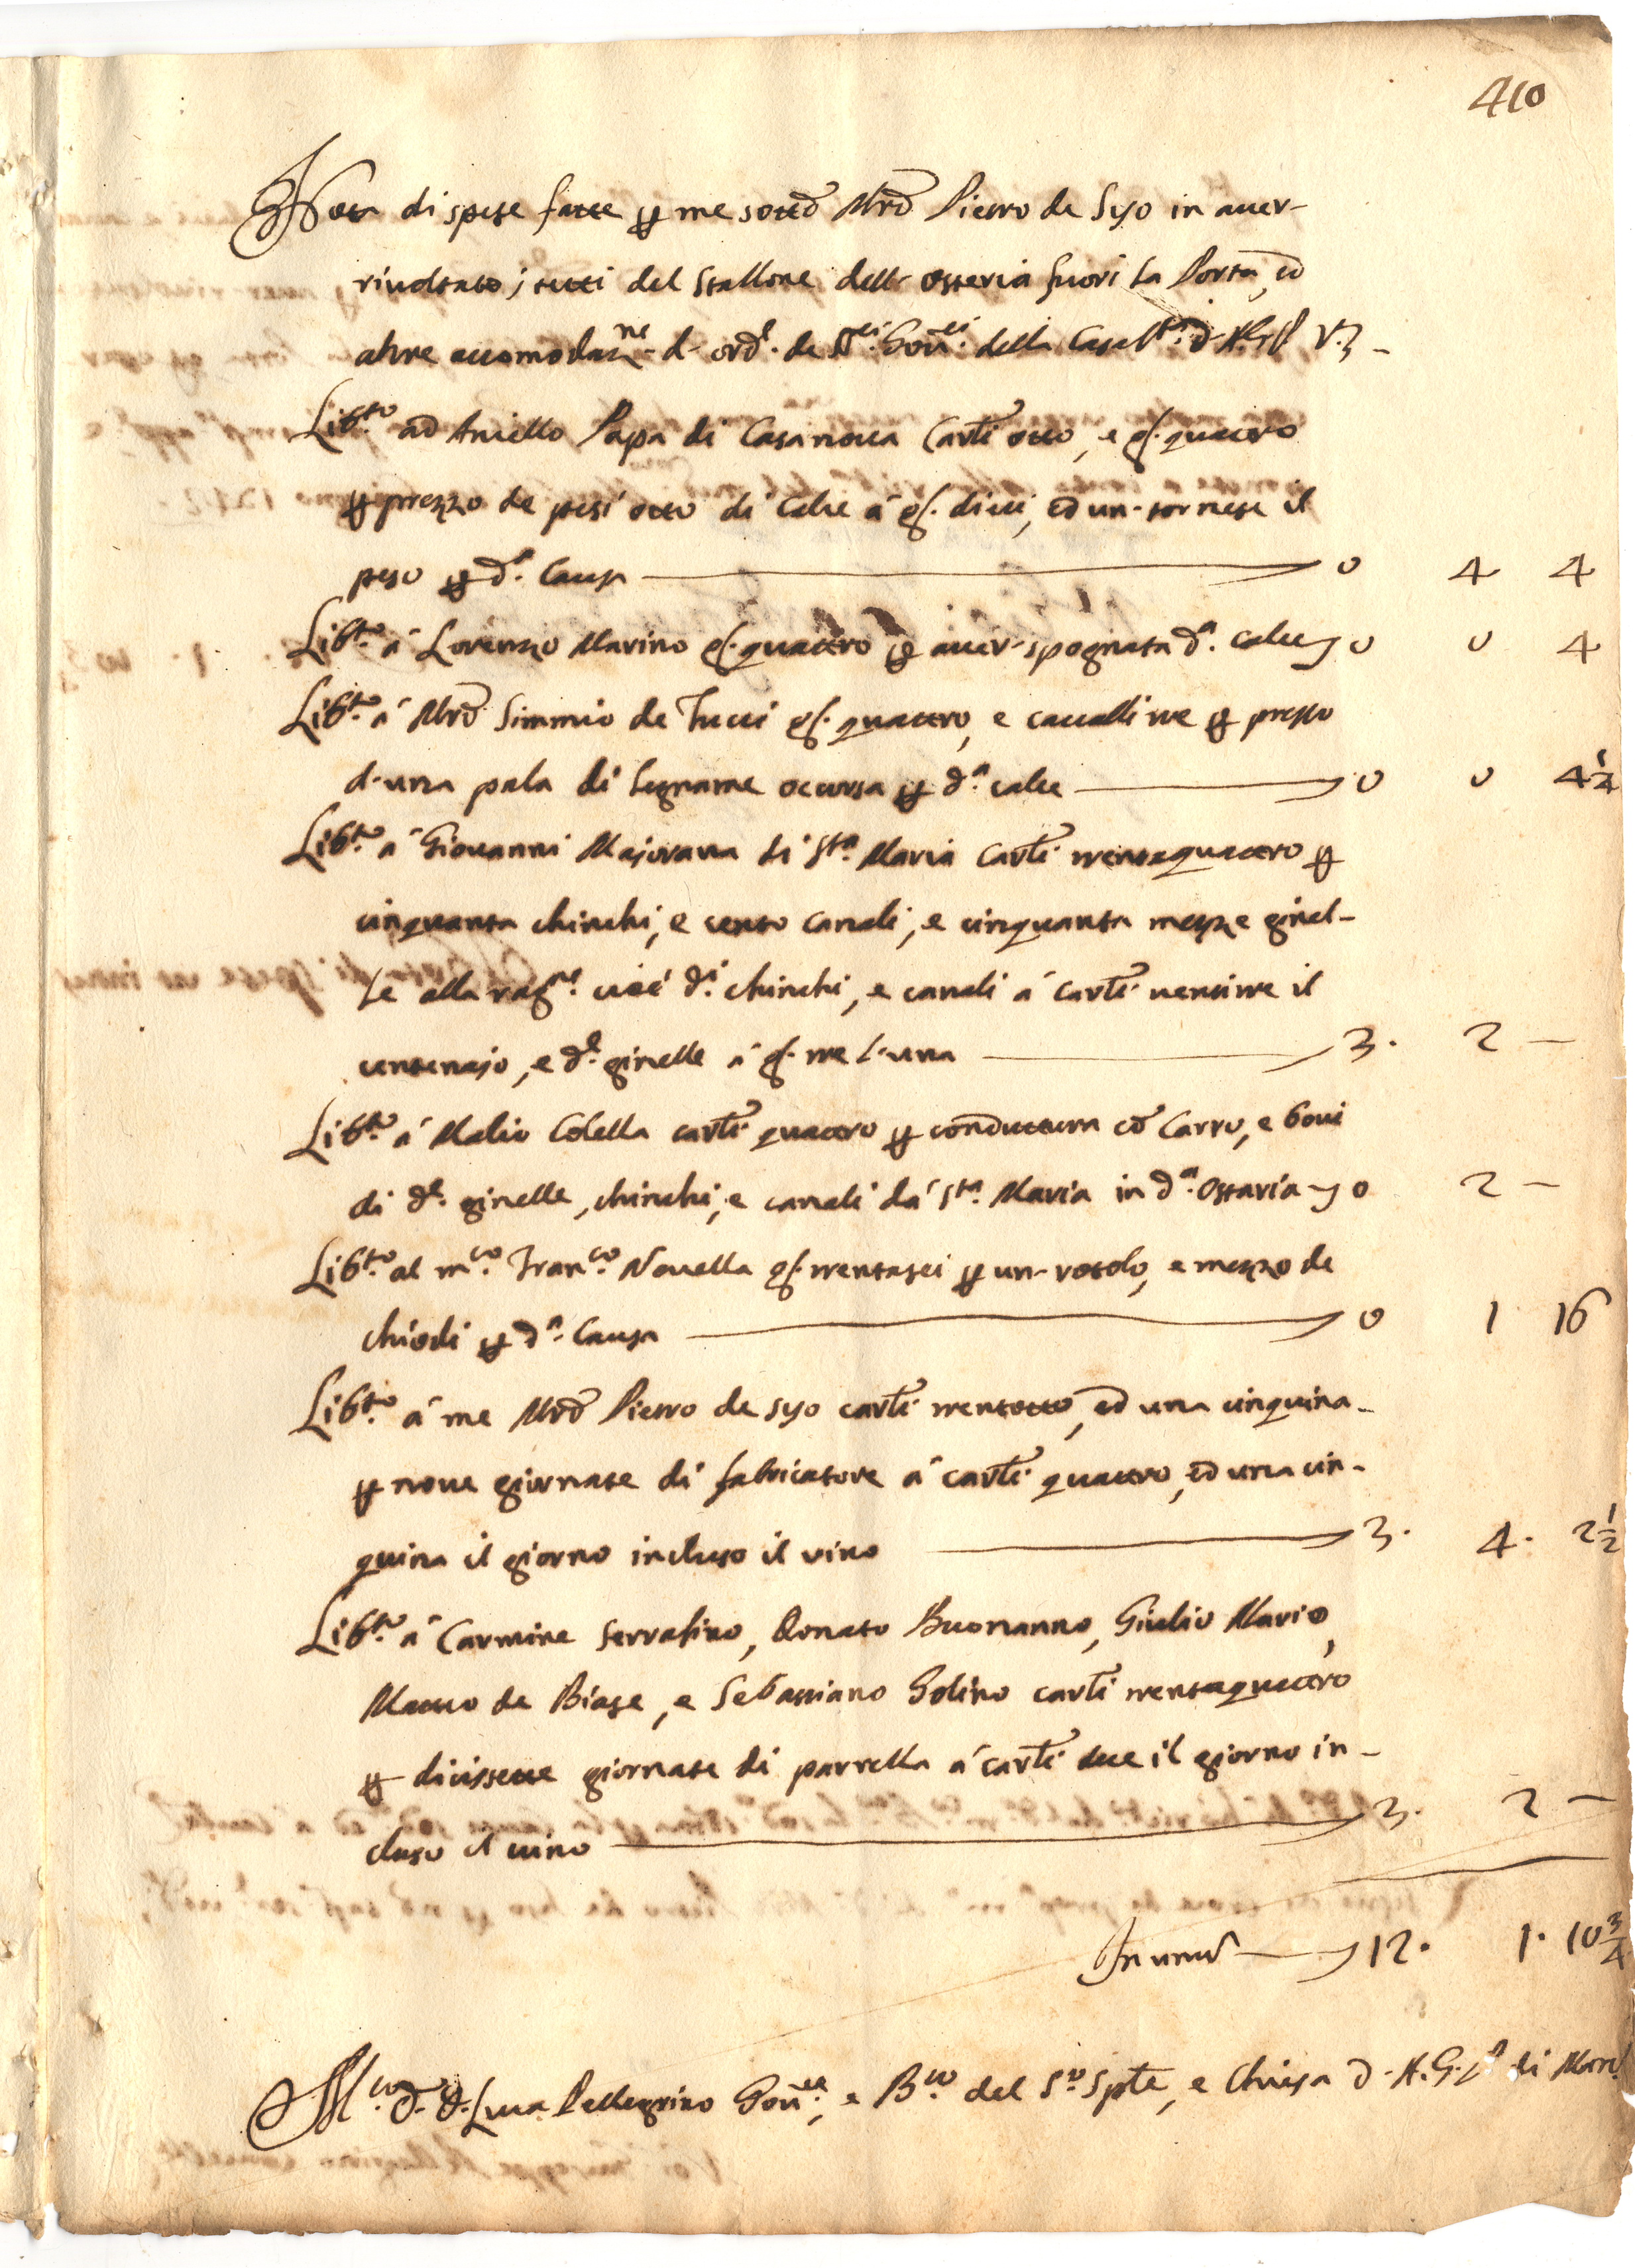 410
Nota di spese fatte p me sotto Mro Pietro de Syo in aver-
rivoltato i tetti del Stallone dell' osteria fuori la Porta, ed
altre accomodazne d' ord.e de SS.ci Gov.ri della Casa
Lib.to ad Aniello Papa di Casanova Carli otto, e gr. quattro
p prezzo de pesi otto di Calce á gr. dieci, ed un-tornese il
peso p d.a Causa 0 4 4
Lib.to á Lorenzo Marino gr. quattro p aver-spognata d.a calce 0 0 4
Lib.to á Mro Simmio de Tucci gr. quattro, e cavalli tre p prezzo
d'una pala di legname occorsa p d.a calce 0 0 4 1/4
Lib.to á Giovanni Majorana di S.ta Maria Carli trentaquattro p
cinquanta chinchi, e cento canali, e cinquanta mezze ginel-
le alla rag.ne cioé d.i chinchi, e canali á Carli ventitre il
centenajo, e d.e ginelle á gr. tre l'una 3. 2 –
Lib.to á Malio Colella carli quattro p conduttura co Carro, e bovi
di d.e ginelle, chinchi, e canali dá S.ta Maria in d.a Ostaria 0 2 –
Lib.to al m.co Fran.co Novella gr. trentasei p un-rotolo, e mezzo de
chiodi p d.a Causa 0 1 16
Lib.to á me Mro Pietro de Syo carli trentotto, ed una cinquina
p nove giornate di fabricatore á carli quattro, ed una cin-
quina il giorno incluso il vino 3. 4. 2 1/2
Lib.to á Carmine Serrafino, Donato Buonanno, Giulio Mario,
Matteo de Biase, e Sebastiano Golino carli trentaquattro
p diecissette giornate di parrella á carli due il giorno in-
cluso il vino 3. 2 –
In unum 12. 1. 10 3/4
M.co D. D. Luca Pellegrino Gov.re, e B.co del S.to Spto, e Chiesa d. A. G. P. di